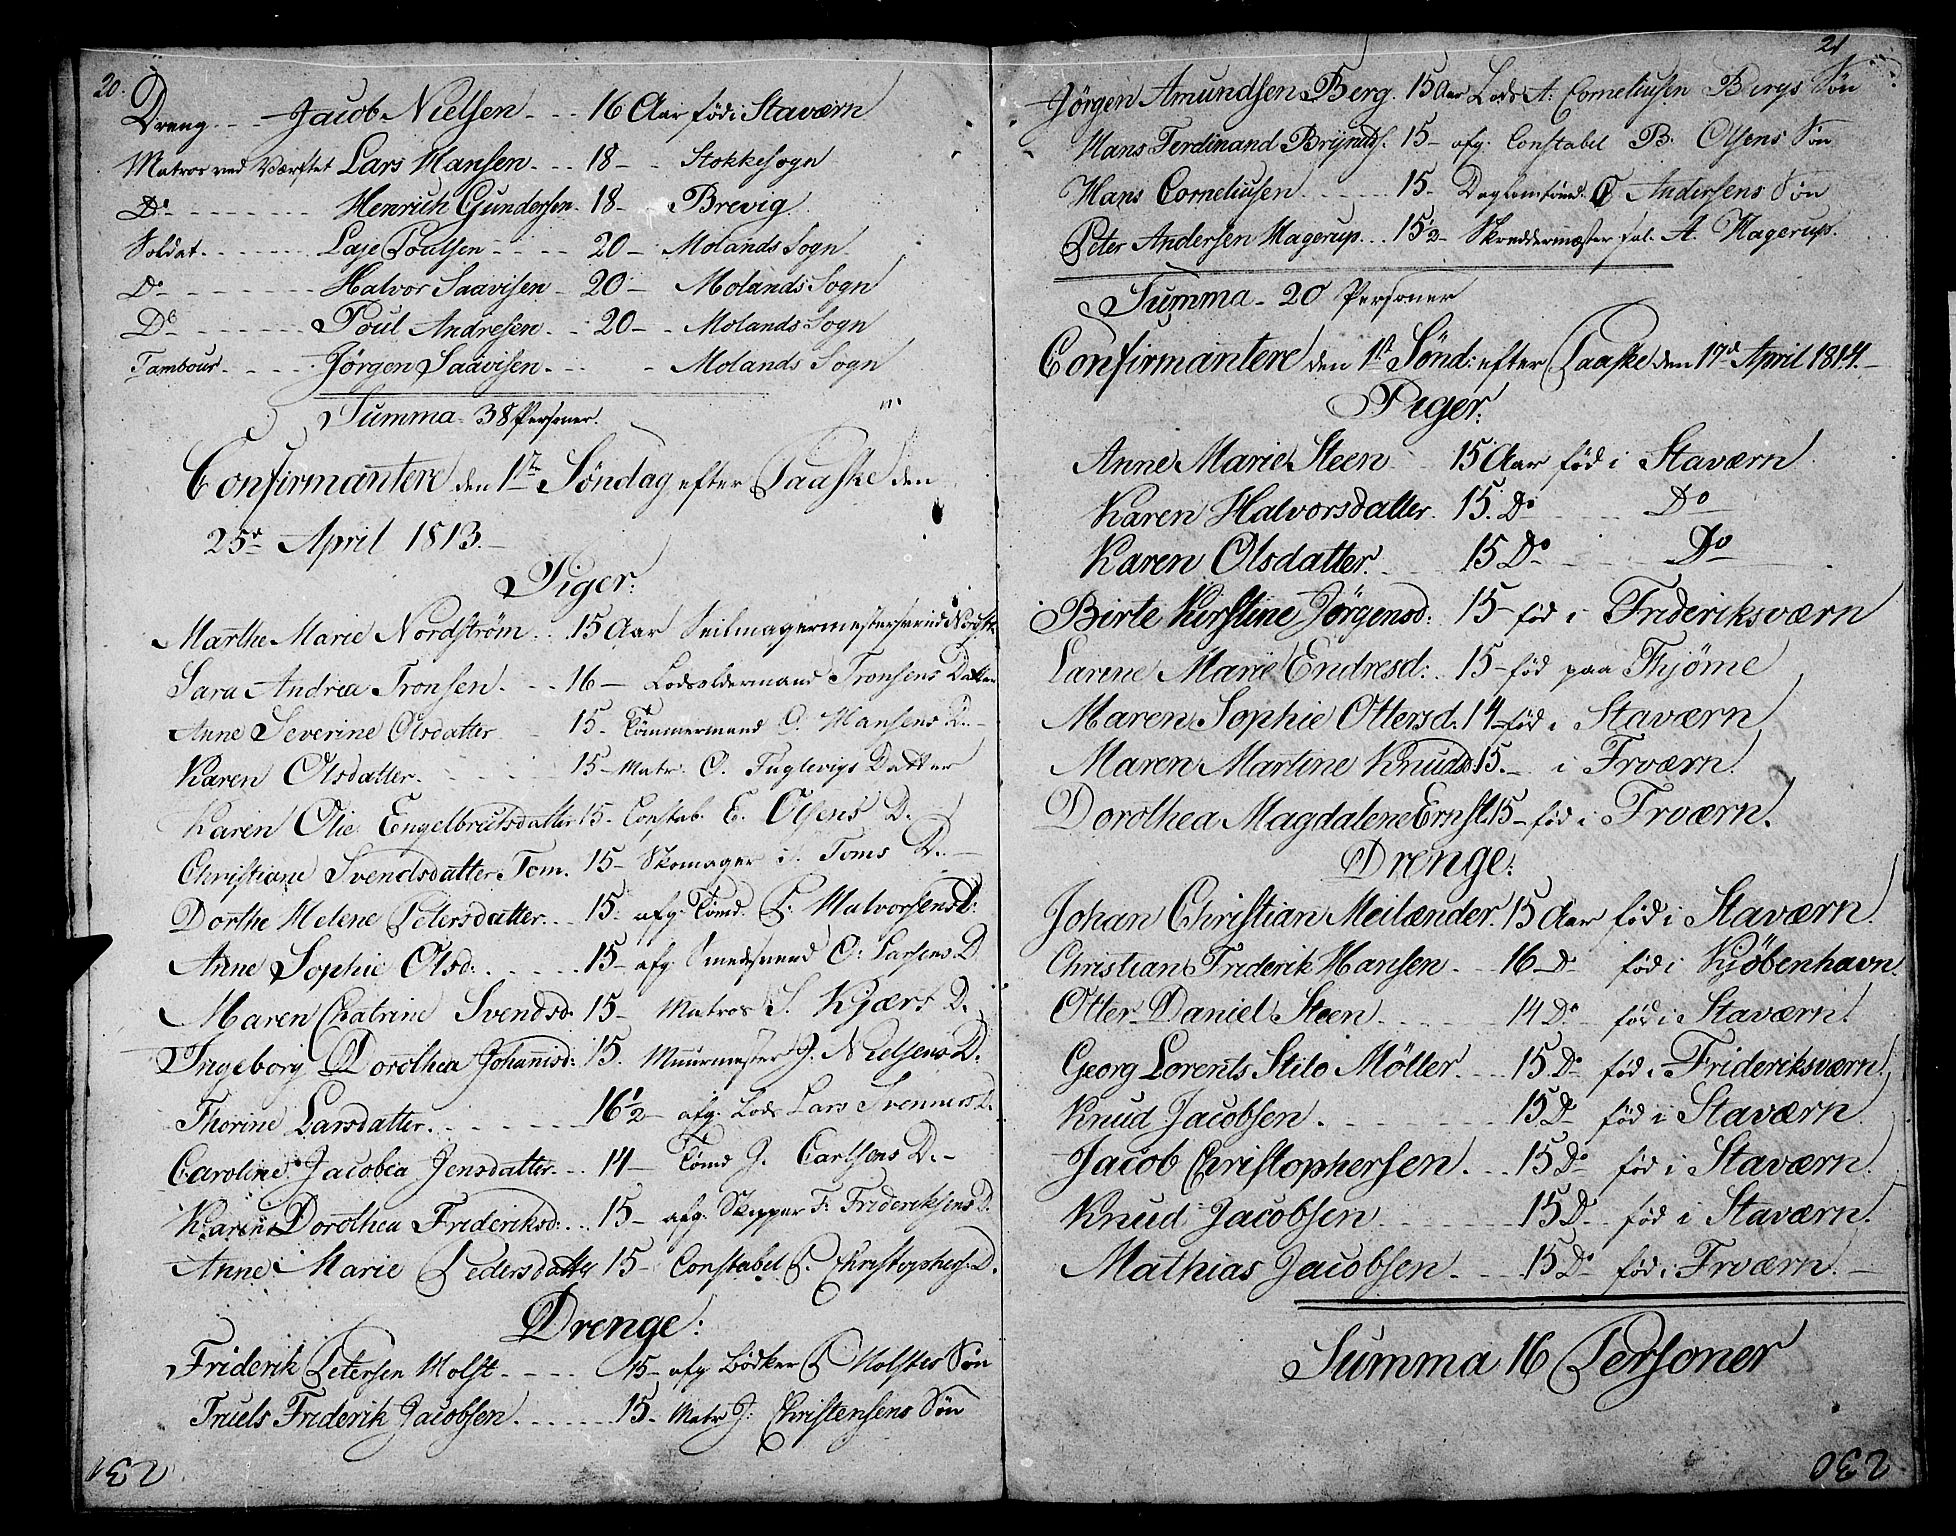 20.
Dreng - - - Jacob Nielsen - - - 16 Aar født i Staværn
Matros ved Værftet Lars Hansen - - - 18 - - Stokkesogn
Do - - - - - - - Henrich Gundersen - 18 - Brevig
Soldat - - - - - - Laje Poulsen - - - - - 20 - Molands Sogn
Do - - - - - - - Halvor Saavisen - 20 - Molands Sogn
Do - - - - - - Poul Andresen - - 20 - Molands Sogn
Tambour - - - - - Jörgen Saavisen - - - - Molands Sogn
Summa - 38 Personer.
Confirmantere den 1te Söndag efter Paaske den
25de April 1813. -
Piger:
Marthe Marie Nordström - - 15 Aar Seilmagermestersvend Nordst.
Sara Andrea Tronsen - - - 16 - Lodsoldermand Tronsens Datter
Anne Severine Olsdatter - 15 - Tömmermand O. Hansens D. -
Karen Olsdatter - - - - - 15 - Matr. O. Fuglevigs Datter
Karen Olie Engelbretsdatter 15 - Constab. E. Olsens D.
Christiane Svendsdatter Tom. 15 - Skomager S. Toms D. -
Dorthe Helene Petersdatter - - 15 - afg. Tömd. P. Halvorsens D:
Anne Sophie Olsd: - - - - - 15 - afg. Smedsvend O: Larsens D
Maren Chatrine Svendsd: 15 - Matros S. Kjærs D.
Ingeborg Dorothea Johannisd: 15. Muurmester J. Nielsens D.
Thorine Larsdatter - - - - - - 16 1/2 - afg. Lods Lars Svenners D.
Caroline Jacobea Jensdatter - - 14 - Tömd J. Carlsens D. -
Karen Dorothea Frideriksd: - - 15 - afg. Skipper F. Frideriksens D.
Anne Marie Pedersdatter 15 - Constabel P. Christophers: D.
Drenge:
Friderik Petersen Holst - - - - 15 - afg. Bödker P. Holstes Sön
Truels Friderik Jacobsen - - - - - 15 - Matr J: Christensens Sön
231
21
Jörgen Amundsen Berg. 15 Aar Lods A: Corneliusen Bergs Sön
Hans Ferdinand Bryndls. 15 - afg. Constabel B. Olsens Sön
Hans Corneliusen - - - - - 15 - Daglönnend. C. Andersens Sön
Peter Andersen Hagerup - - 15 1/2 - Skreddermester Sal. A. Hagerups.
Summa - 20 Personer
Confirmantere den 1ste Sönd: efter Paaske den 17de April 1814. -
Piger:
Anne Marie Steen - - 15 Aar föd i Staværn
Karen Halvorsdatter. 15. Do - - - Do
Karen Olsdatter. - - 15 Do - - - Do
Birte Kirstine Jörgensd: 15 - föd i Frideriksværn
Larene Marie Endresd: - 15 - föd paa Thjöme
Maren Sophie Ottersd. 14 - föd i Staværn
Maren Martine Knudsd 15. - i Frværn.
Dorothea Magdalene Ernst. 15 - föd i Frværn.
Drenge:
Johan Christian Meilænder. 15 Aar föd i Staværn.
Christian Friderik Hansen - - 16 Do föd i Kjöbenhavn.
Otter Daniel Steen - - - - - 14 Do - föd i Staværn.
Georg Lorents Stilo Möller - - - 15 Do - föd i Frideriksværn.
Knud Jacobsen - - - - - - 15 Do föd i Staværn
Jacob Christophersen - - 15 Do - föd i Staværn.
Knud Jacobsen - - - - - - 15 Do - föd i Staværn.
Mathias Jacobsen - - - - 15 Do - föd i Frværn. -
Summa 16 Personer
230